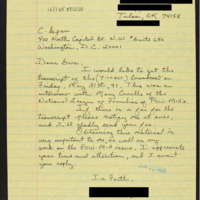 Tulsa, OK 74158
C-Span
400 North Capitol St. N.W. Suite 650
Washington, D.C. 20001
Dear Sirs:
I would like to get the
transcript of the broadcast on
Friday, May 31st, 91. This was an
interview with Mary of the
National League of Families of POW-MIA's.
If there is a fee for the
transcript please notify me at once,
and I'll gladly send you fee.
Obtaining this material is
very important to me, as well as my
work on the POW-MIA issues. I appreciate
your time and attention, and I await
your reply.
In Faith,